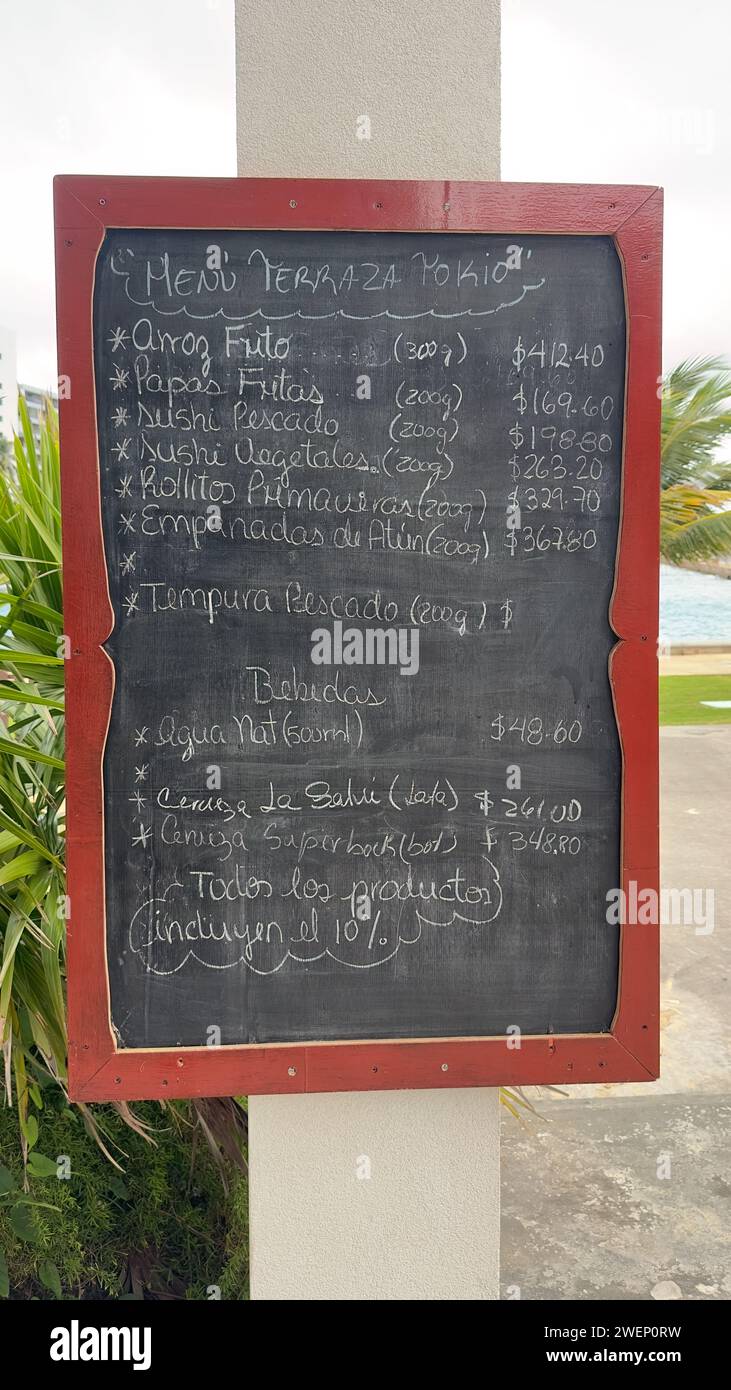 "Menú Terraza Tokio"
* Arroz Frito ..... (300g) $412.40
* Papas Fritas .. (200g) $169.60
* Sushi Pescado (200g) $198.80
* Sushi Vegetales.. (200g) $263.20
* Rollitos Primaveras (200g) $329.70
* Empanadas de Atún (200g) $367.80
*
* Tempura Pescado (200g) $
Bebidas
* Agua Nat (500ml) $48.60
*
* Cerveza La Salví (lata) $261.00
* Cerveza Superbock (bot) $348.80
Todos los productos
incluyen el 10%
alamy
Image ID: 2WEP0RW
www.alamy.com